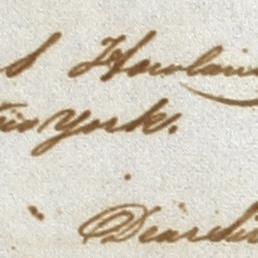 & Howland
New York.
Dear Sir